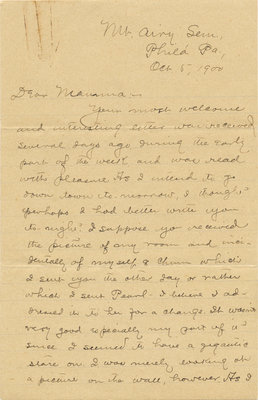 Mt. Airy Sem.,
Phil'd Pa,
Oct 5, 1900
Dear Mamma:-
Your most welcome
and interesting letter was received
several days ago during the early
part of the week and was read
with pleasure. As I intend to go
down town to-morrow, I thought
perhaps I had better write you
to-night. I suppose yo received
the picture of my room and inci-
dentally of myself & Chum which
I sent you the other day or rather
which I sent Pearl. I believe I ad-
dressed it to her for a change. It wasn't
very good especially my part of it
since I seemed to have a gigantic
stare on. I was merely looking at
a picture on the wall, however. As I